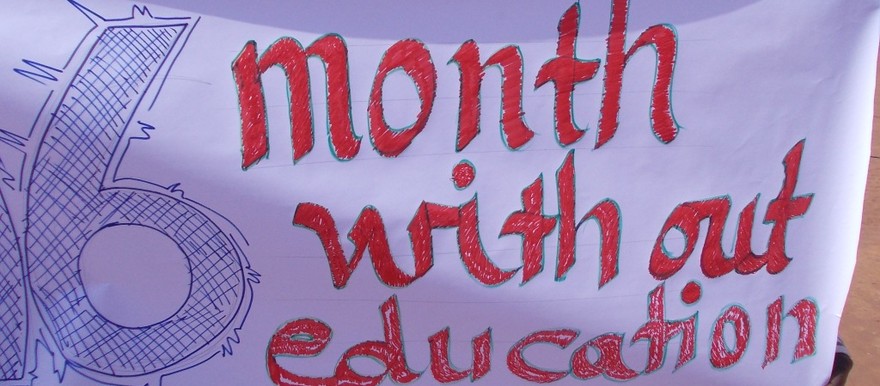 6 month
with out
education